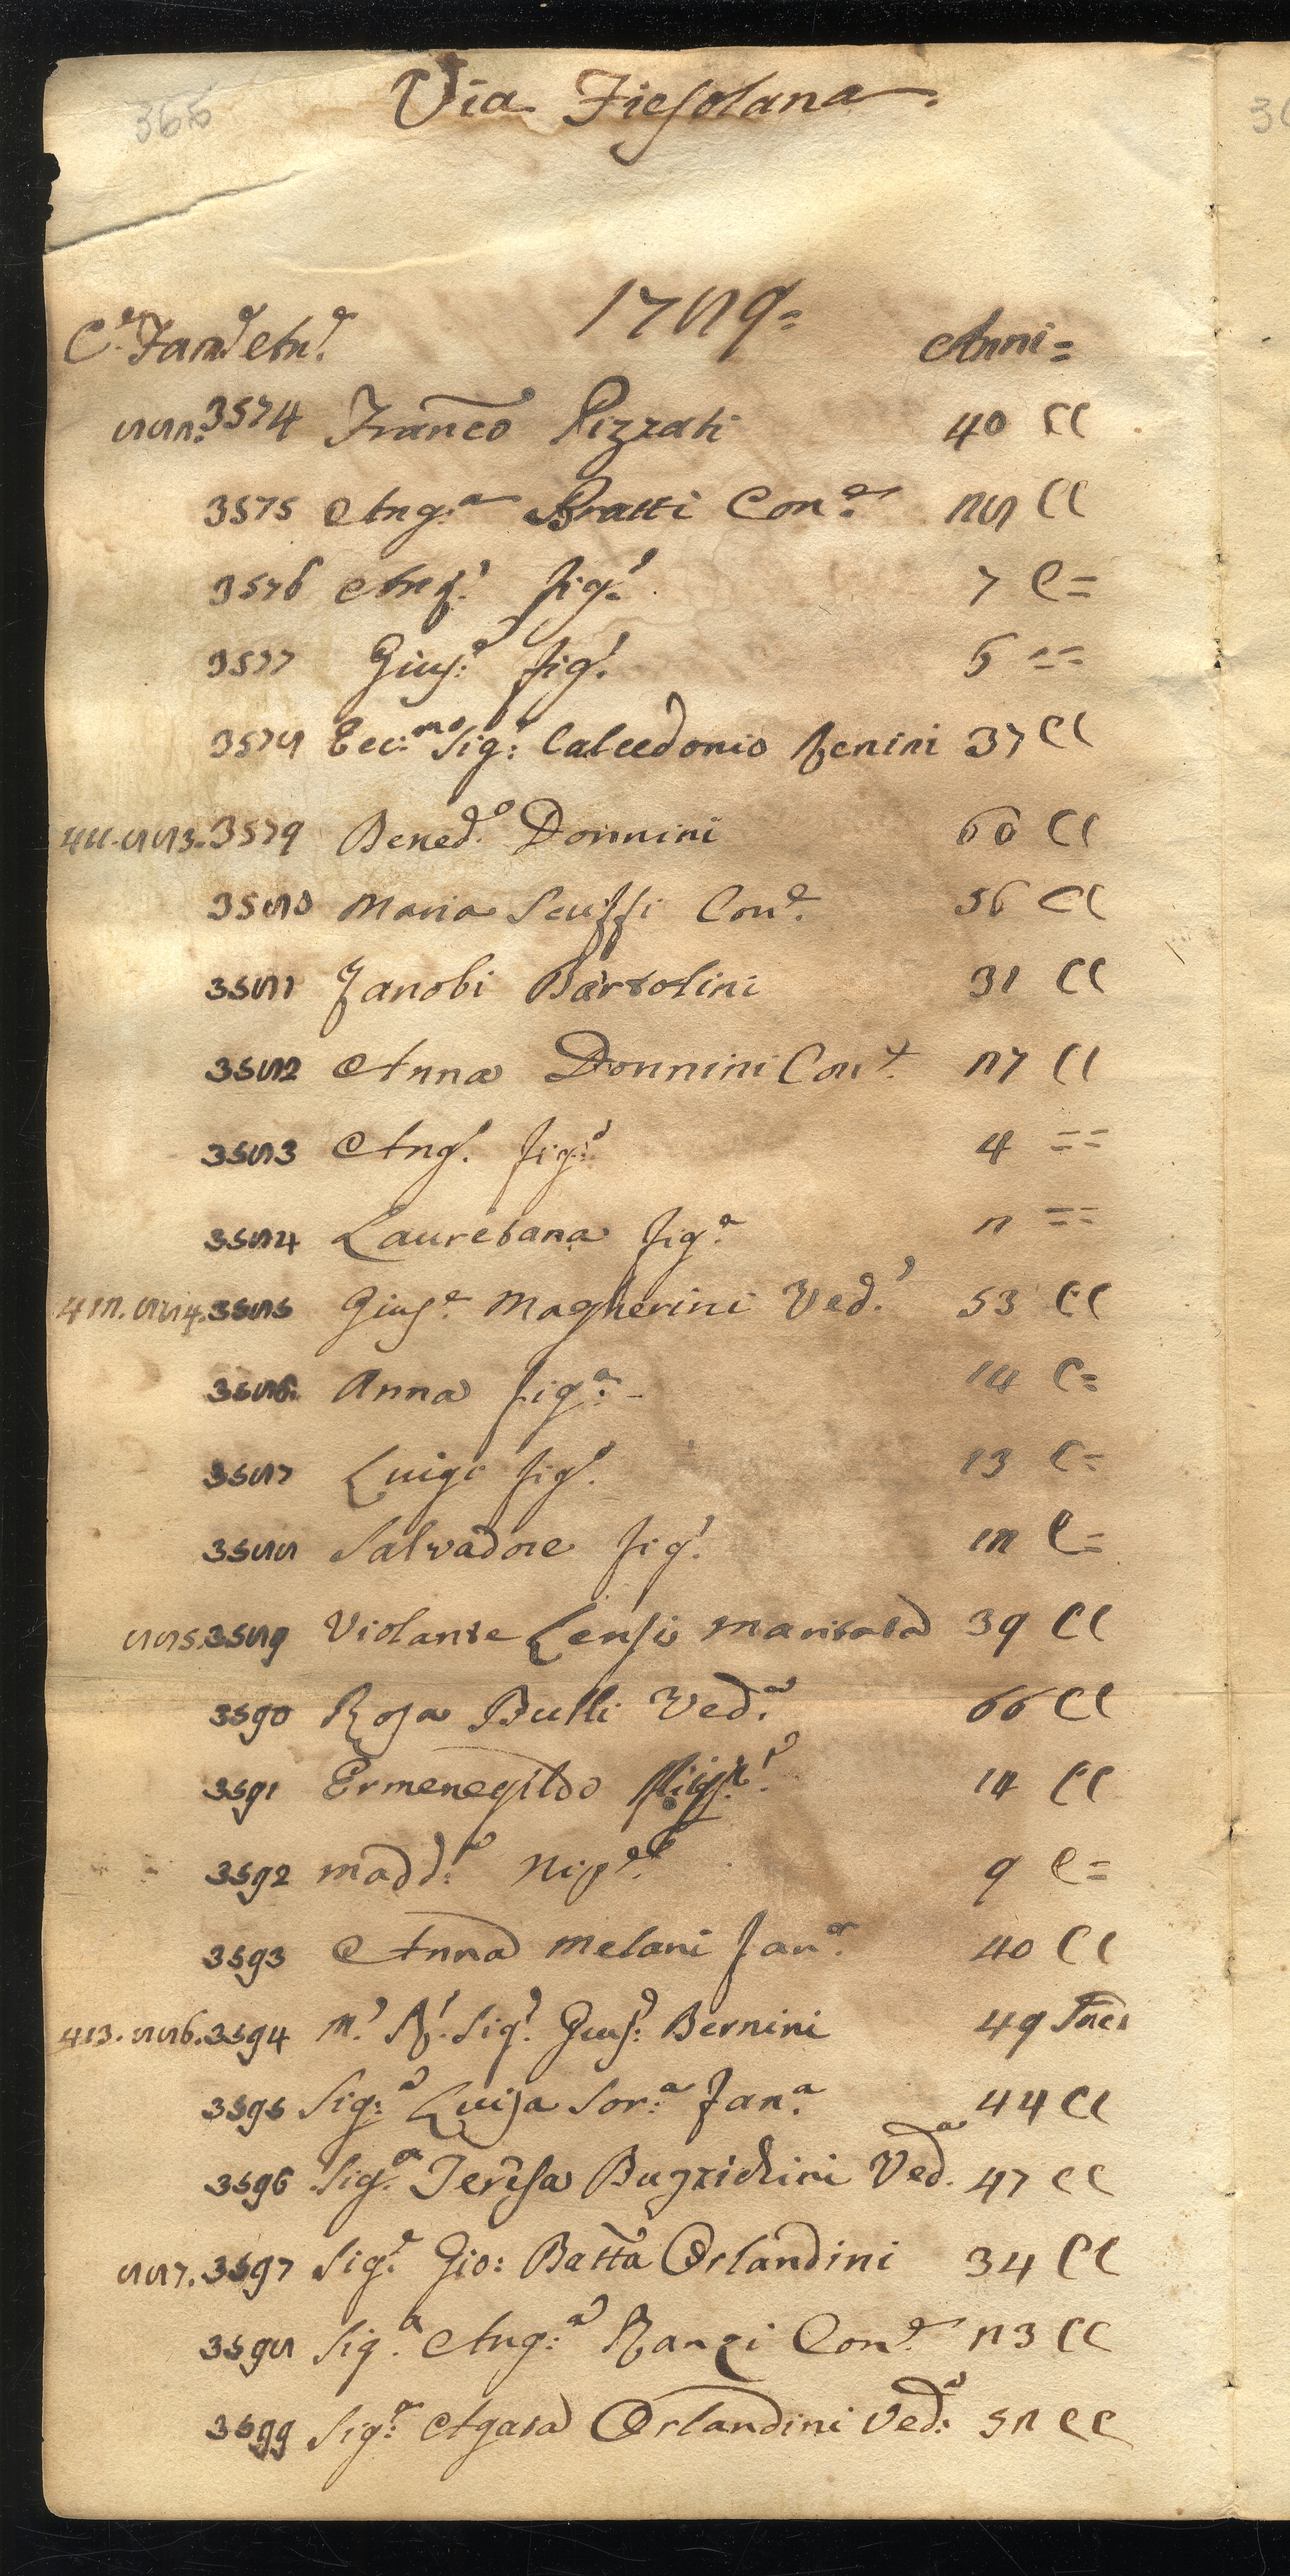 366
Via Fiesolana.
1789=
C.e Fam.e An.e Anni=
882. 3574 Fran̄co Pizzati 40 CC
3575 Ang.a Bratti Con.e 28 CC
3576 Ang.o fig.o 7 C=
3577 Gius.e fig.o 5 ==
3578 Ecc.mo Sig.r Calcedonio Benini 37 CC
411. 883. 3579 Bened.o Donnini 60 CC
3580 Maria Scuffi Con.e 56 CC
3581 Zanobi Bartolini 31 CC
3582 Anna Donnini Con.e 27 CC
3583 Ang.o fig.o 4 ==
3584 Lauretana fig.a 2 ==
412. 884. 3585 Gius.a Magherini Ved.a 53 CC
3586 Anna fig.a 14 C=
3587 Luigi fig.o 13 C=
3588 Salvadore fig.o 12 C=
885. 3589 Violante Lensi Maritata 39 CC
3590 Rosa Bulli Ved.a 66 CC
3591 Ermenegildo 14 CC
3592 Madd.a Nip.e 9 C=
3593 Anna Melani Fan.a 40 CC
413. 886. 3594 M.o R.o Sig.r Gius.e Bernini 49
3595 Sig.a Luisa Sor.a Fan.a 44 CC
3596 Sig.a Teresa Bugzichini Ved.a 47 CC
887. 3597 Sig.r Gio: Batta Orlandini 34 CC
3598 Sig.a Ang.a Ranzi Con.e 23 CC
3599 Sig.a Agata Orlandini Ved.a 52 CC